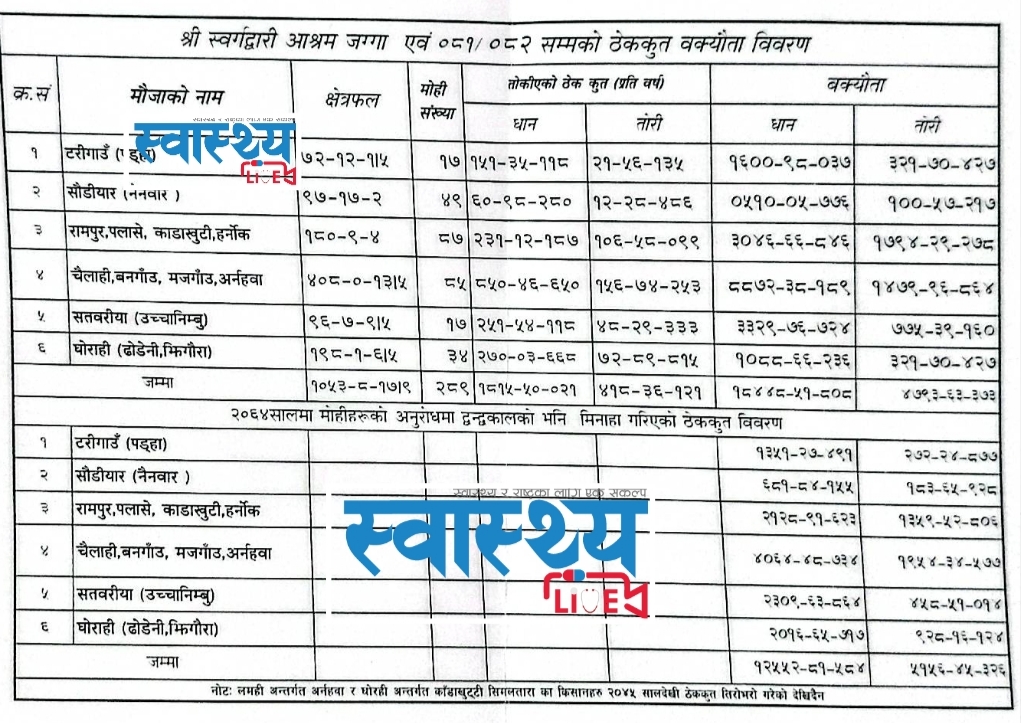 श्री स्वर्गद्वारी आश्रम जग्गा एवं ०८१/०८२ सम्मको ठेककुत वक्यौता विवरण
क्र.सं मौजाको नाम क्षेत्रफल मोही संख्या तोकीएको ठेक कुत (प्रति वर्ष) वक्यौता
धान तोरी धान तोरी
स्वास्थ्य र राष्ट्रका लागि एक संकल्प
स्वास्थ्य
LIVE
१ टरीगाउँ ७२-१२-१।५ १७ १५१-३५-११८ २१-५६-१३५ १६००-९८-०३७ ३२१-७०-४२७
२ सौडीयार (नैनवार ) ९७-१७-२ ४९ ६०-९८-२८० १२-२८-४८६ ०५१०-०५-७७६ १००-५७-२१७
३ रामपुर,पलासे, काडाखुटी,हर्नोक १८०-९-४ ८७ २३१-१२-१८७ १०६-५८-०९९ ३०४६-६६-८४६ १७९४-२९-२७८
४ चैलाही,बनगाँउ, मजगाँउ,अर्नहवा ४०८-०-१३।५ ८५ ८५०-४६-६५० १५६-७४-२५३ ८८७२-३८-१८९ १४७९-९६-८६४
५ सतवरीया (उच्चानिम्बु) ९६-७-९।५ १७ २५१-५४-११८ ४८-२९-३३३ ३३२९-७६-७२४ ७७५-३९-१६०
६ घोराही (ढोडेनी,झिगौरा) १९८-१-६।५ ३४ २७०-०३-६६८ ७२-८९-८१५ १०८८-६६-२३६ ३२१-७०-४२७
जम्मा १०५३-८-१७।९ २८९ १८१५-५०-०२१ ४१८-३६-१२१ १८४४८-५१-८०८ ४७९३-६३-३७३
२०६४सालमा मोहीहरूको अनुरोधमा द्वन्द्वकालको भनि मिनाहा गरिएको ठेककुत विवरण
१ टरीगाउँ (पड्हा) १३५१-२७-४९१ २७२-२४-८७७
२ सौडीयार (नैनवार ) ६८१-८४-१५५ १८३-६५-९२८
३ रामपुर,पलासे, काडाखुटी,हर्नोक २१२८-९१-६२३ १३५९-५२-८०६
स्वास्थ्य र राष्ट्रका लागि एक संकल्प
स्वास्थ्य
LIVE
४ चैलाही,बनगाँउ, मजगाँउ,अर्नहवा ४०६४-४८-७३४ १९५४-३४-५७७
५ सतवरीया (उच्चानिम्बु) २३०९-६३-८६४ ४५८-५१-०१४
६ घोराही (ढोडेनी,झिगौरा) २०१६-६५-७१७ ९२८-१६-१२४
जम्मा १२५५२-८१-५८४ ५१५६-४५-३२६
नोट: लमही अन्तर्गत अर्नहवा र घोरही अन्तर्गत काँडाखुट्टी सिमलतारा का किसानहरु २०४५ सालदेखी ठेककुत तिरोभरो गरेको देखिदैन